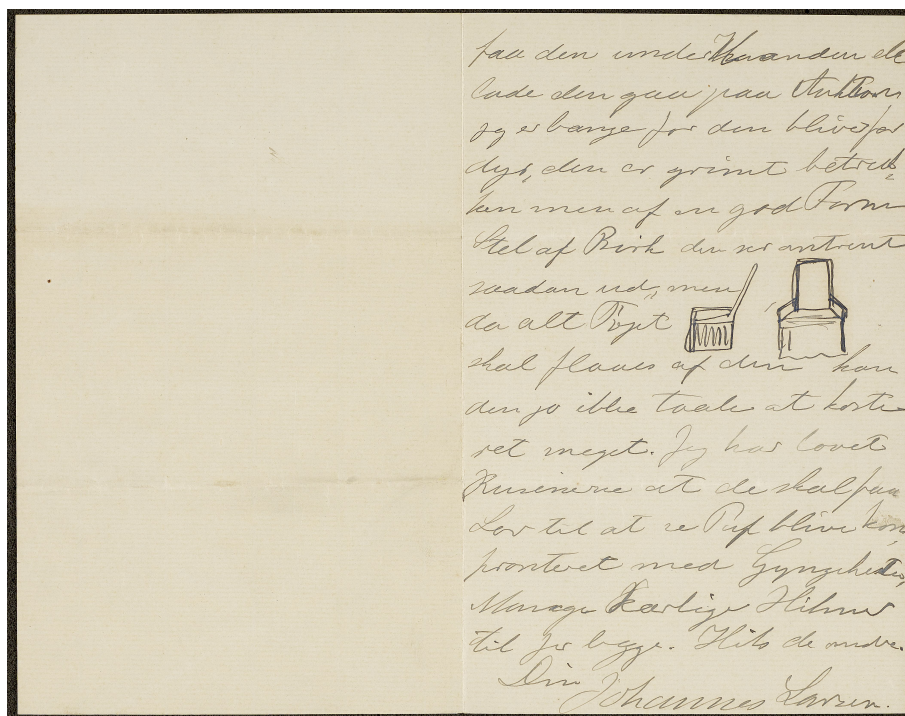 faa den under Haanden el
lade den gaa paa Auktion
jeg er bange for den bliver for
dyr, den er grimt betruk,
ken men af en god Form
Stel af Birk den ser omtrent
saadan ud, men
da alt Tøjet
skal flaaes af den kan
den jo ikke taale at koste
ret meget. Jeg har lovet
Kusinerne at de skal faa
Lov til at se Puf blive kon
fronteret med Gyngehesten,
Mange Kærlige Hilsner
til Jer begge. Hils de andre.
Din
Johannes Larsen.